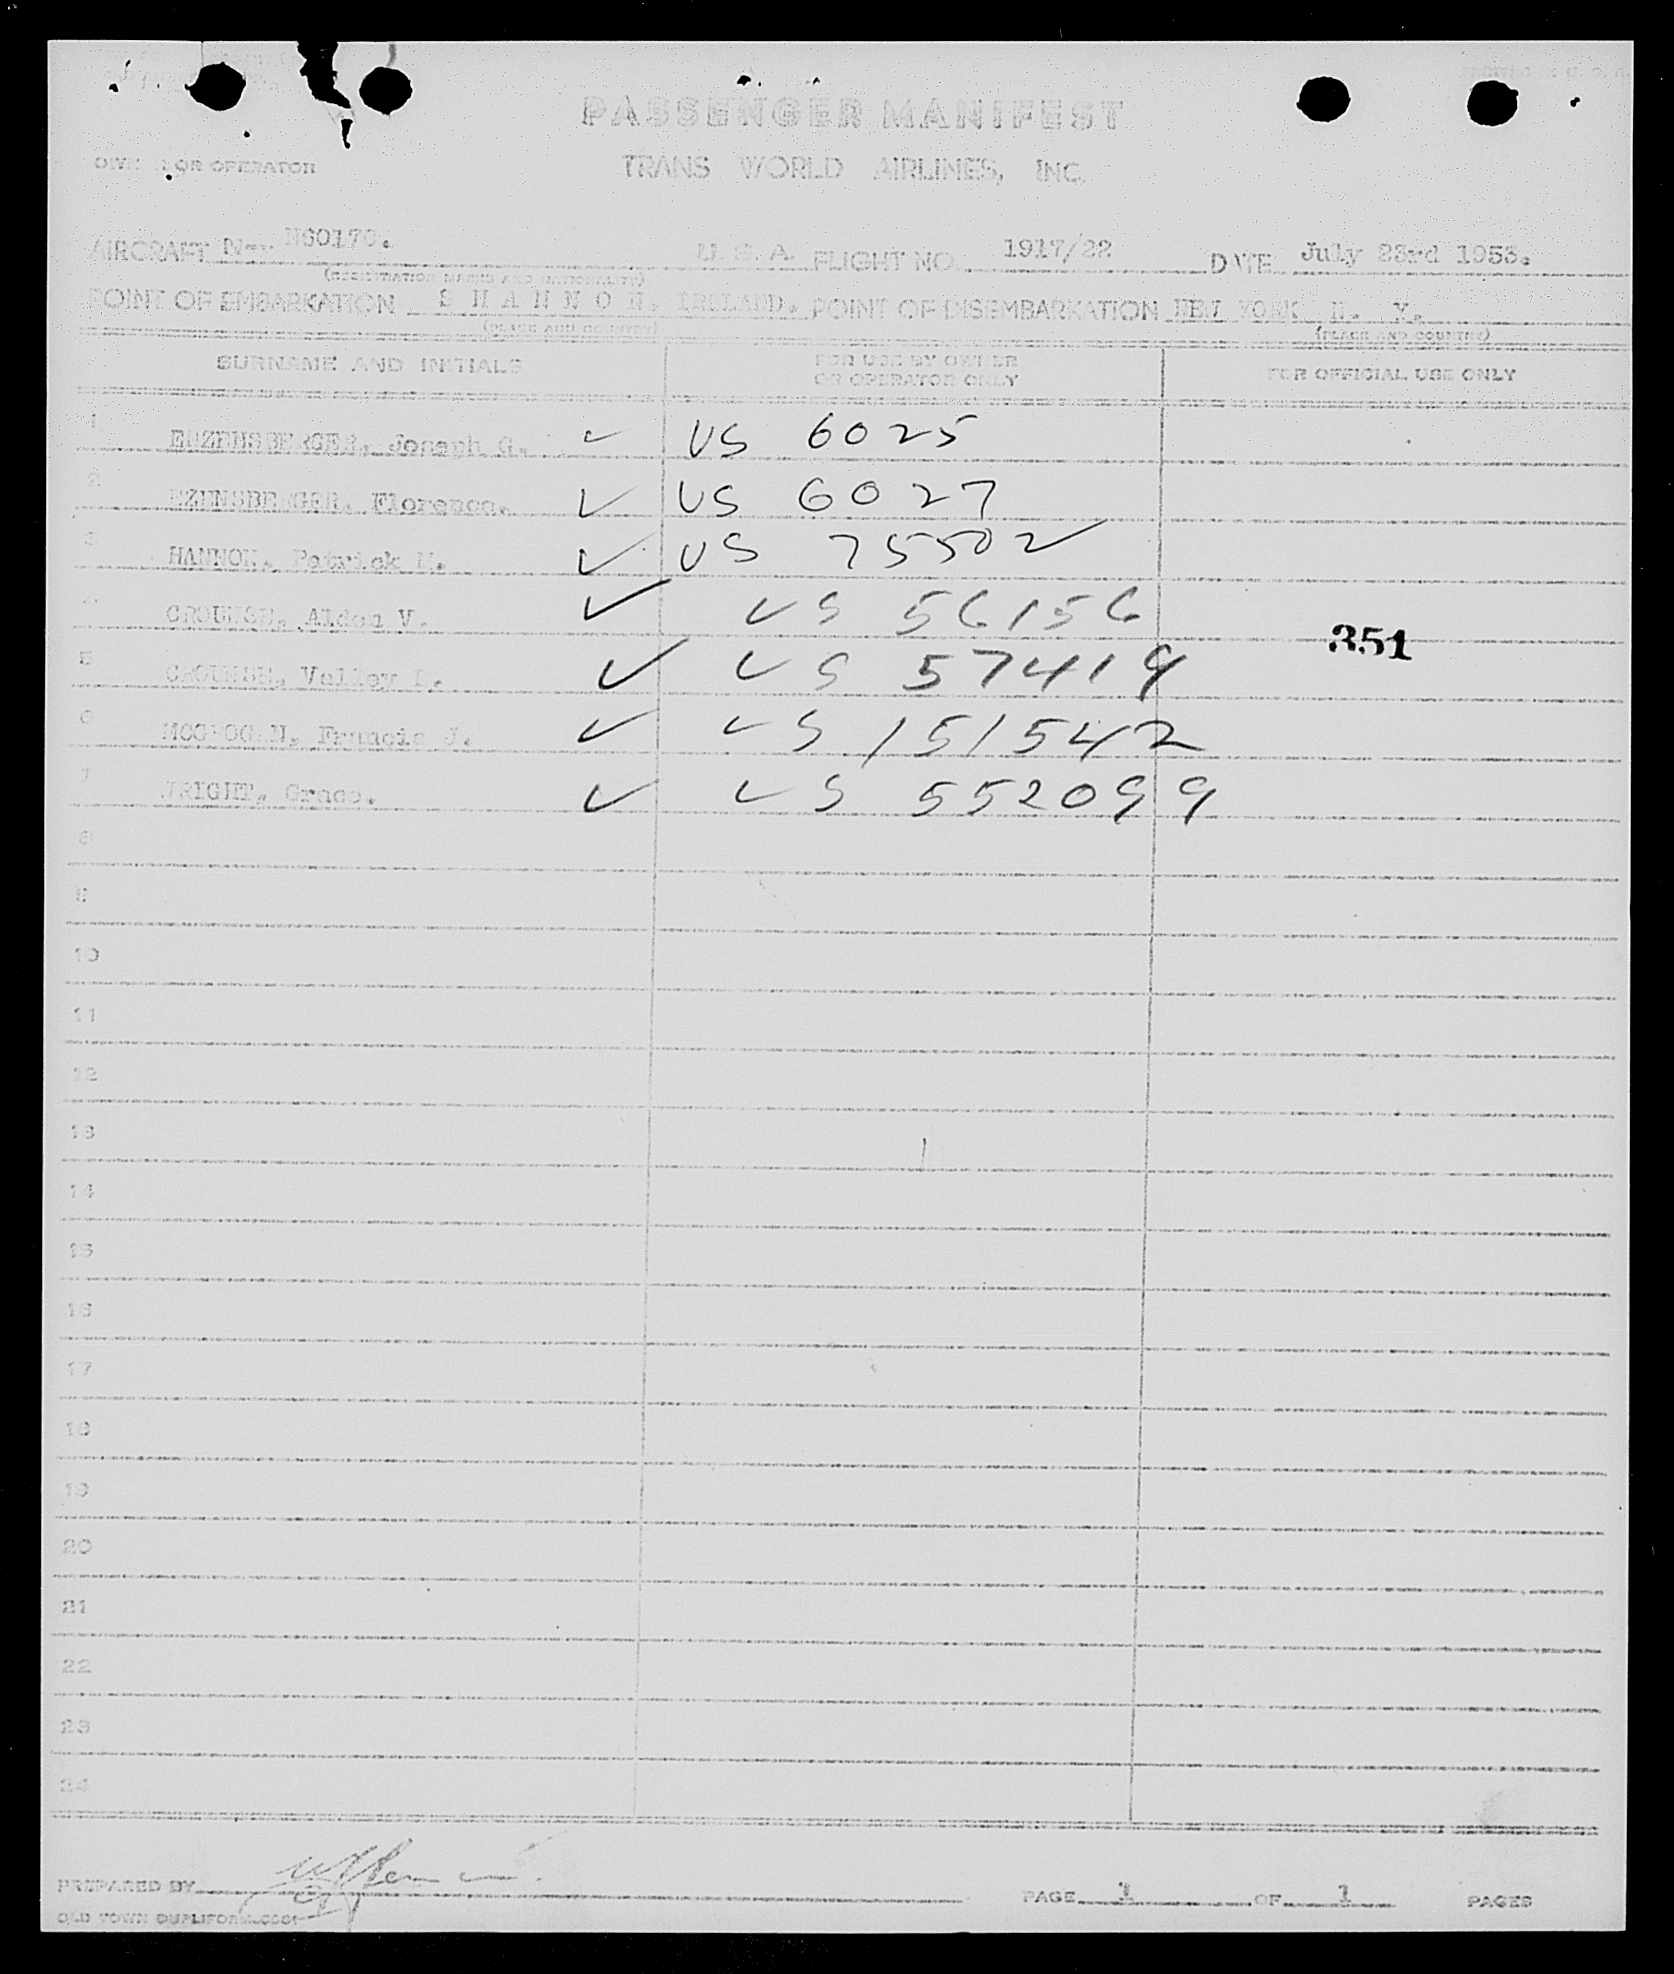 PASSENGER MANIFEST
OR OPERATOR
TRANS WORLD AIRLINES, INC.
AIRCRAFT U. S. A. FLIGHT NO. 1917/22 DATE July 23rd 1953.
(REGISTRATION MARKS AND NATIONALITY)
POINT OF EMBARKATION S H A N N O N. IRELAND. POINT OF DISEMBARKATION NEW YORK N. Y.
(PLACE AND COUNTRY) (PLACE AND COUNTRY)
SURNAME AND INITIALS FOR USE BY OWNER OR OPERATOR ONLY FOR OFFICIAL USE ONLY
1 Joseph G. ✓ US 6025
2 Florence. ✓ US 6027
3 HANNON, Patrick ✓ US 75502
4 Alden V. ✓ US 56156
351
5 Valley ✓ US 57419
6 Francis J. ✓ US 151542
7 WRIGHT, Grace. ✓ US 552099
8
9
10
11
12
13
14
15
16
17
18
19
20
21
22
23
24
PREPARED BY PAGE 1 OF 1 PAGES
OLD TOWN DUPLIFORM